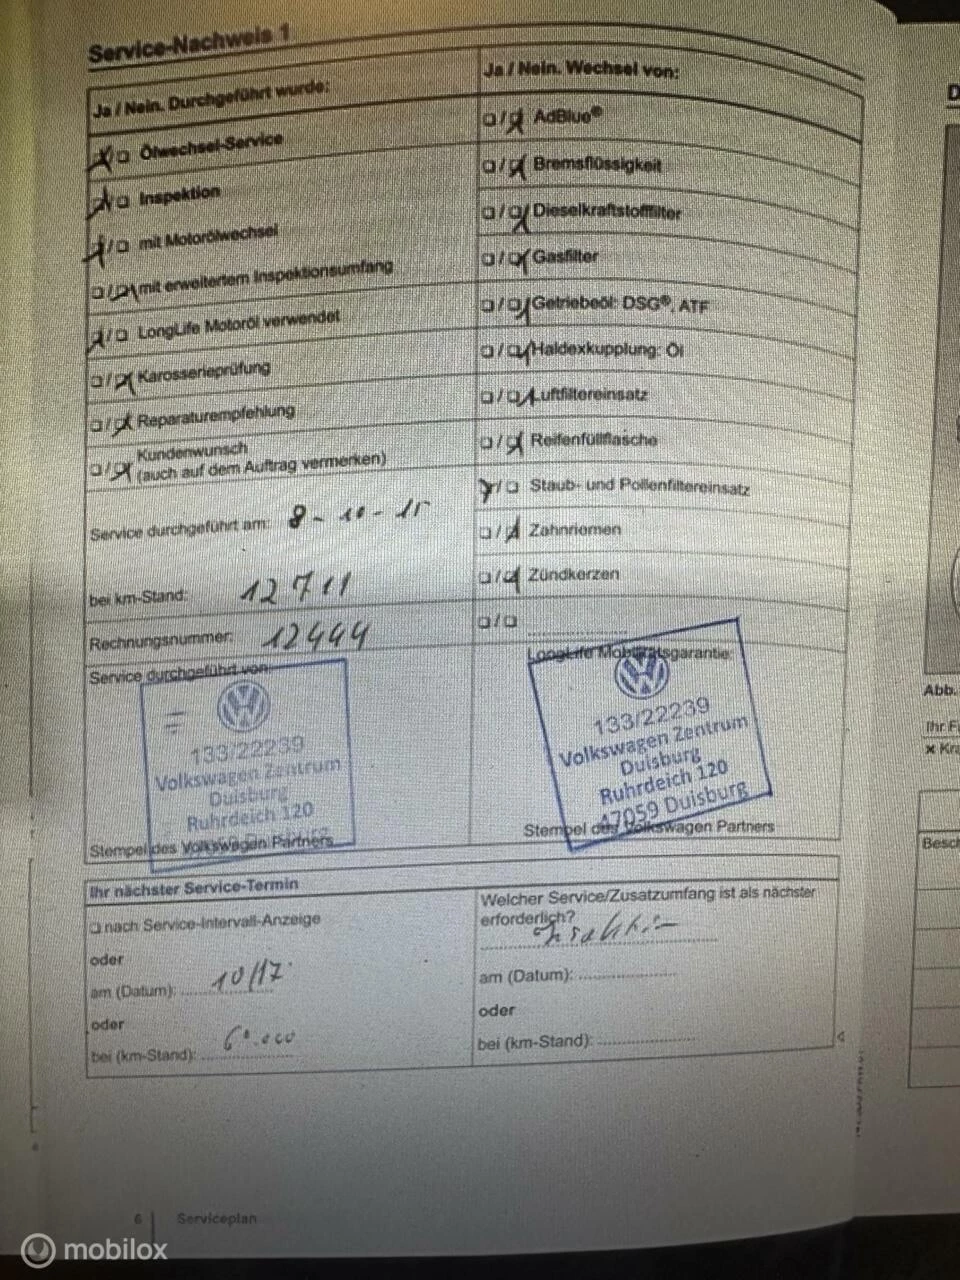 Service-Nachweis 1
Ja / Nein. Durchgeführt wurde:
Ölwechsel-Service
Inspektion
mit Motorölwechsel
mit erweitertem Inspektionsumfang
LongLife Motoröl verwendet
Karosserieprüfung
Reparaturempfehlung
Kundenwunsch
(auch auf dem Auftrag vermerken)
Service durchgeführt am: 8-10-15
bei km-Stand: 12711
Rechnungsnummer: 12444
Service durchgeführt von:
133/22239
Volkswagen Zentrum
Duisburg
Ruhrdeich 120
Stempel des Volkswagen Partners
Ja / Nein. Wechsel von:
AdBlue®
Bremsflüssigkeit
Dieselkraftstofffilter
Gasfilter
Getriebeöl: DSG®, ATF
Haldexkupplung: Öl
Luftfiltereinsatz
Reifenfüllflasche
Staub- und Pollenfiltereinsatz
Zahnriemen
Zündkerzen
LongLife Mobilitätsgarantie:
133/22239
Volkswagen Zentrum
Duisburg
Ruhrdeich 120
47059 Duisburg
Stempel des Volkswagen Partners
Ihr nächster Service-Termin
nach Service-Intervall-Anzeige
oder
am (Datum): 10/17
oder
bei (km-Stand): 60.000
Welcher Service/Zusatzumfang ist als nächster
erforderlich?
am (Datum):
oder
bei (km-Stand):
6 Serviceplan
Abb.
mobilox